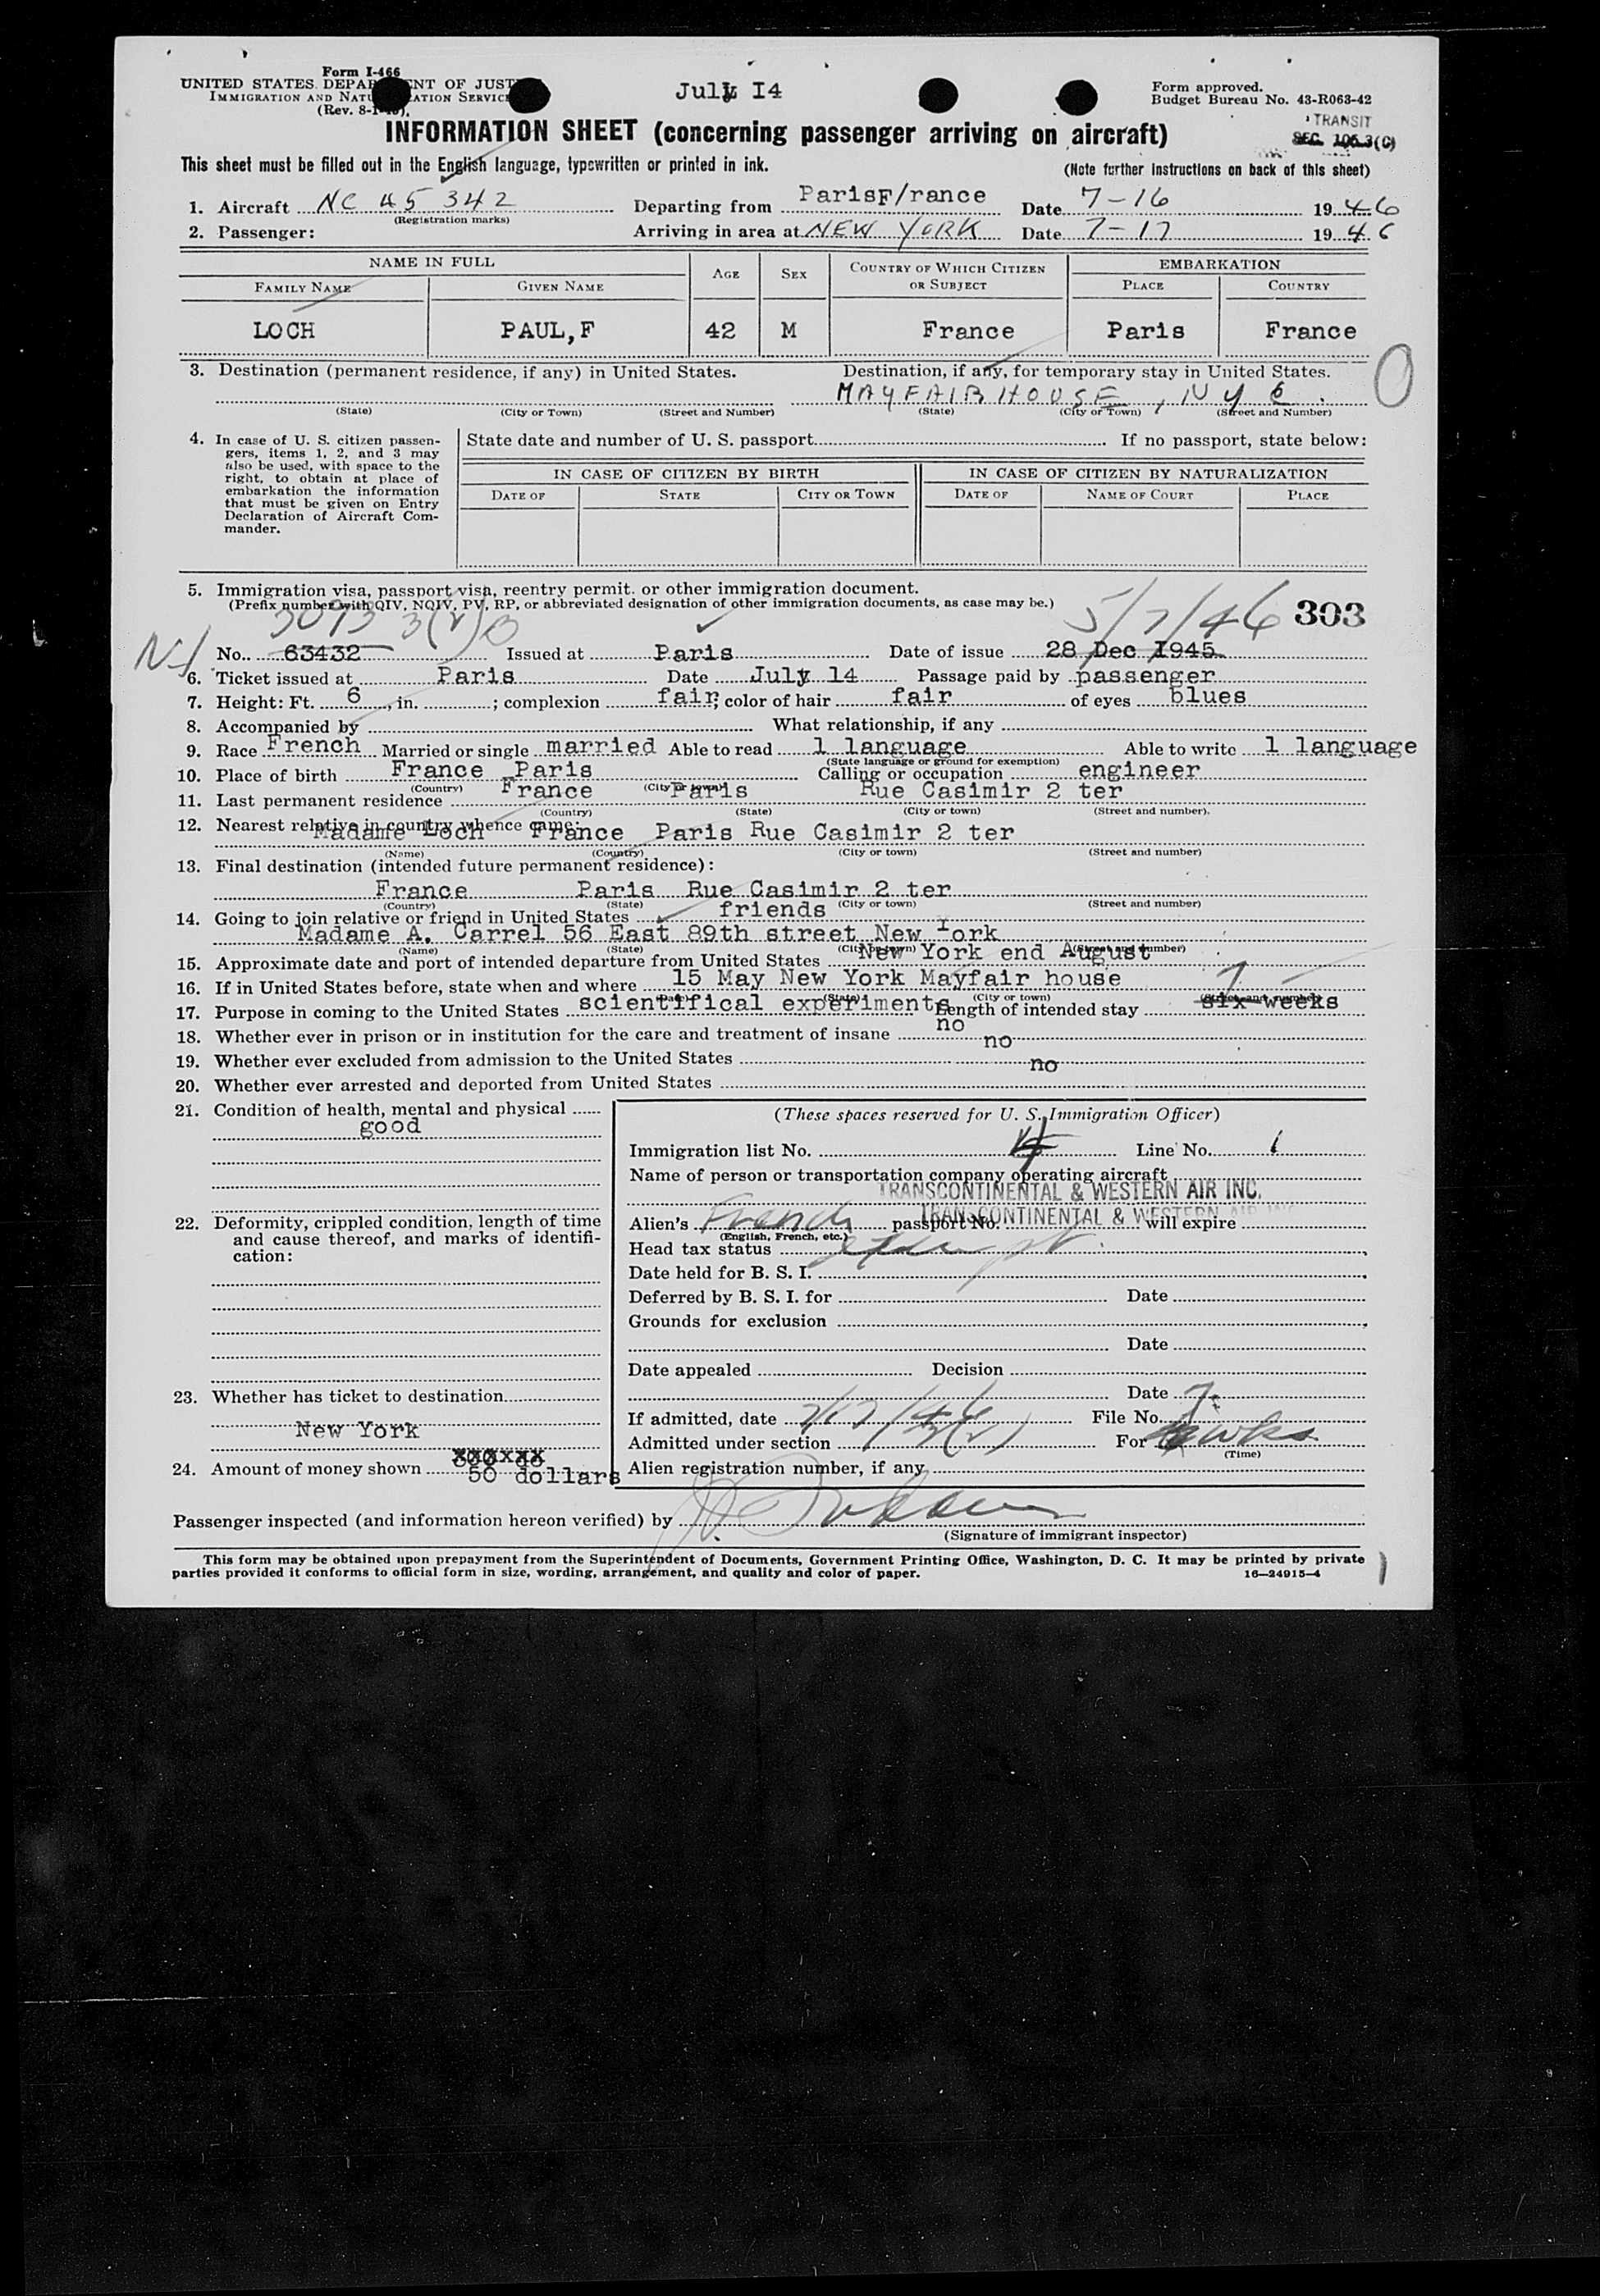 Form I-466
UNITED STATES DEPARTMENT OF JUSTICE
IMMIGRATION AND NATURALIZATION SERVICE
(Rev. 8-1-45).
July I4
Form approved.
Budget Bureau No. 43-R063-42
TRANSIT
SEC. 105.3(C)
INFORMATION SHEET (concerning passenger arriving on aircraft)
This sheet must be filled out in the English language, typewritten or printed in ink.
(Note further instructions on back of this sheet)
1. Aircraft NC 45 342 Departing from ParisF/rance Date 7-16 1946
(Registration marks)
2. Passenger: Arriving in area at NEW YORK Date 7-17 1946
NAME IN FULL AGE SEX COUNTRY OF WHICH CITIZEN OR SUBJECT EMBARKATION
FAMILY NAME GIVEN NAME PLACE COUNTRY
LOCH PAUL,F 42 M France Paris France
0
3. Destination (permanent residence, if any) in United States. Destination, if any, for temporary stay in United States.
MAYFAIR HOUSE, N Y C.
(State) (City or Town) (Street and Number) (State) (City or Town) (Street and Number)
4. In case of U. S. citizen passen-
gers, items 1, 2, and 3 may
also be used, with space to the
right, to obtain at place of
embarkation the information
that must be given on Entry
Declaration of Aircraft Com-
mander.
State date and number of U. S. passport If no passport, state below:
IN CASE OF CITIZEN BY BIRTH IN CASE OF CITIZEN BY NATURALIZATION
DATE OF STATE CITY OR TOWN DATE OF NAME OF COURT PLACE
5. Immigration visa, passport visa, reentry permit. or other immigration document.
(Prefix number with QIV, NQIV, PV, RP, or abbreviated designation of other immigration documents, as case may be.)
5/7/46 303
3093 3(2)B
No. 63432 Issued at Paris Date of issue 28 Dec 1945
6. Ticket issued at Paris Date July 14 Passage paid by passenger
7. Height: Ft. 6, in. ; complexion fair; color of hair fair of eyes blues
8. Accompanied by What relationship, if any
9. Race French Married or single married Able to read 1 language Able to write 1 language
(State language or ground for exemption)
10. Place of birth France Paris Calling or occupation engineer
(Country) (City or town)
11. Last permanent residence France Paris Rue Casimir 2 ter
(Country) (State) (City or town) (Street and number).
12. Nearest relative in country whence came:
Madame Loch France Paris Rue Casimir 2 ter
(Name) (Country) (City or town) (Street and number)
13. Final destination (intended future permanent residence):
France Paris Rue Casimir 2 ter
(Country) (State) (City or town) (Street and number)
14. Going to join relative or friend in United States friends
Madame A. Carrel 56 East 89th street New York
(Name) (State) (City or town) (Street and number)
15. Approximate date and port of intended departure from United States New York end August
16. If in United States before, state when and where 15 May New York Mayfair house
(Date) (State) (City or town) (Street and number)
17. Purpose in coming to the United States scientifical experiments Length of intended stay six weeks
18. Whether ever in prison or in institution for the care and treatment of insane no
19. Whether ever excluded from admission to the United States no
20. Whether ever arrested and deported from United States no
21. Condition of health, mental and physical
good
22. Deformity, crippled condition, length of time
and cause thereof, and marks of identifi-
cation:
23. Whether has ticket to destination
New York
24. Amount of money shown
50 dollars
(These spaces reserved for U. S. Immigration Officer)
Immigration list No. 4 Line No. 1
Name of person or transportation company operating aircraft
TRANSCONTINENTAL & WESTERN AIR INC.
TRANSCONTINENTAL & WESTERN AIR INC
Alien's French passport No. will expire
(English, French, etc.)
Head tax status exempt
Date held for B. S. I.
Deferred by B. S. I. for Date
Grounds for exclusion
Date
Date appealed Decision
Date
If admitted, date 7/17/46 File No.
Admitted under section 3(2) For wks
(Time)
Alien registration number, if any
Passenger inspected (and information hereon verified) by
(Signature of immigrant inspector)
This form may be obtained upon prepayment from the Superintendent of Documents, Government Printing Office, Washington, D. C. It may be printed by private
parties provided it conforms to official form in size, wording, arrangement, and quality and color of paper. 16—24915-4